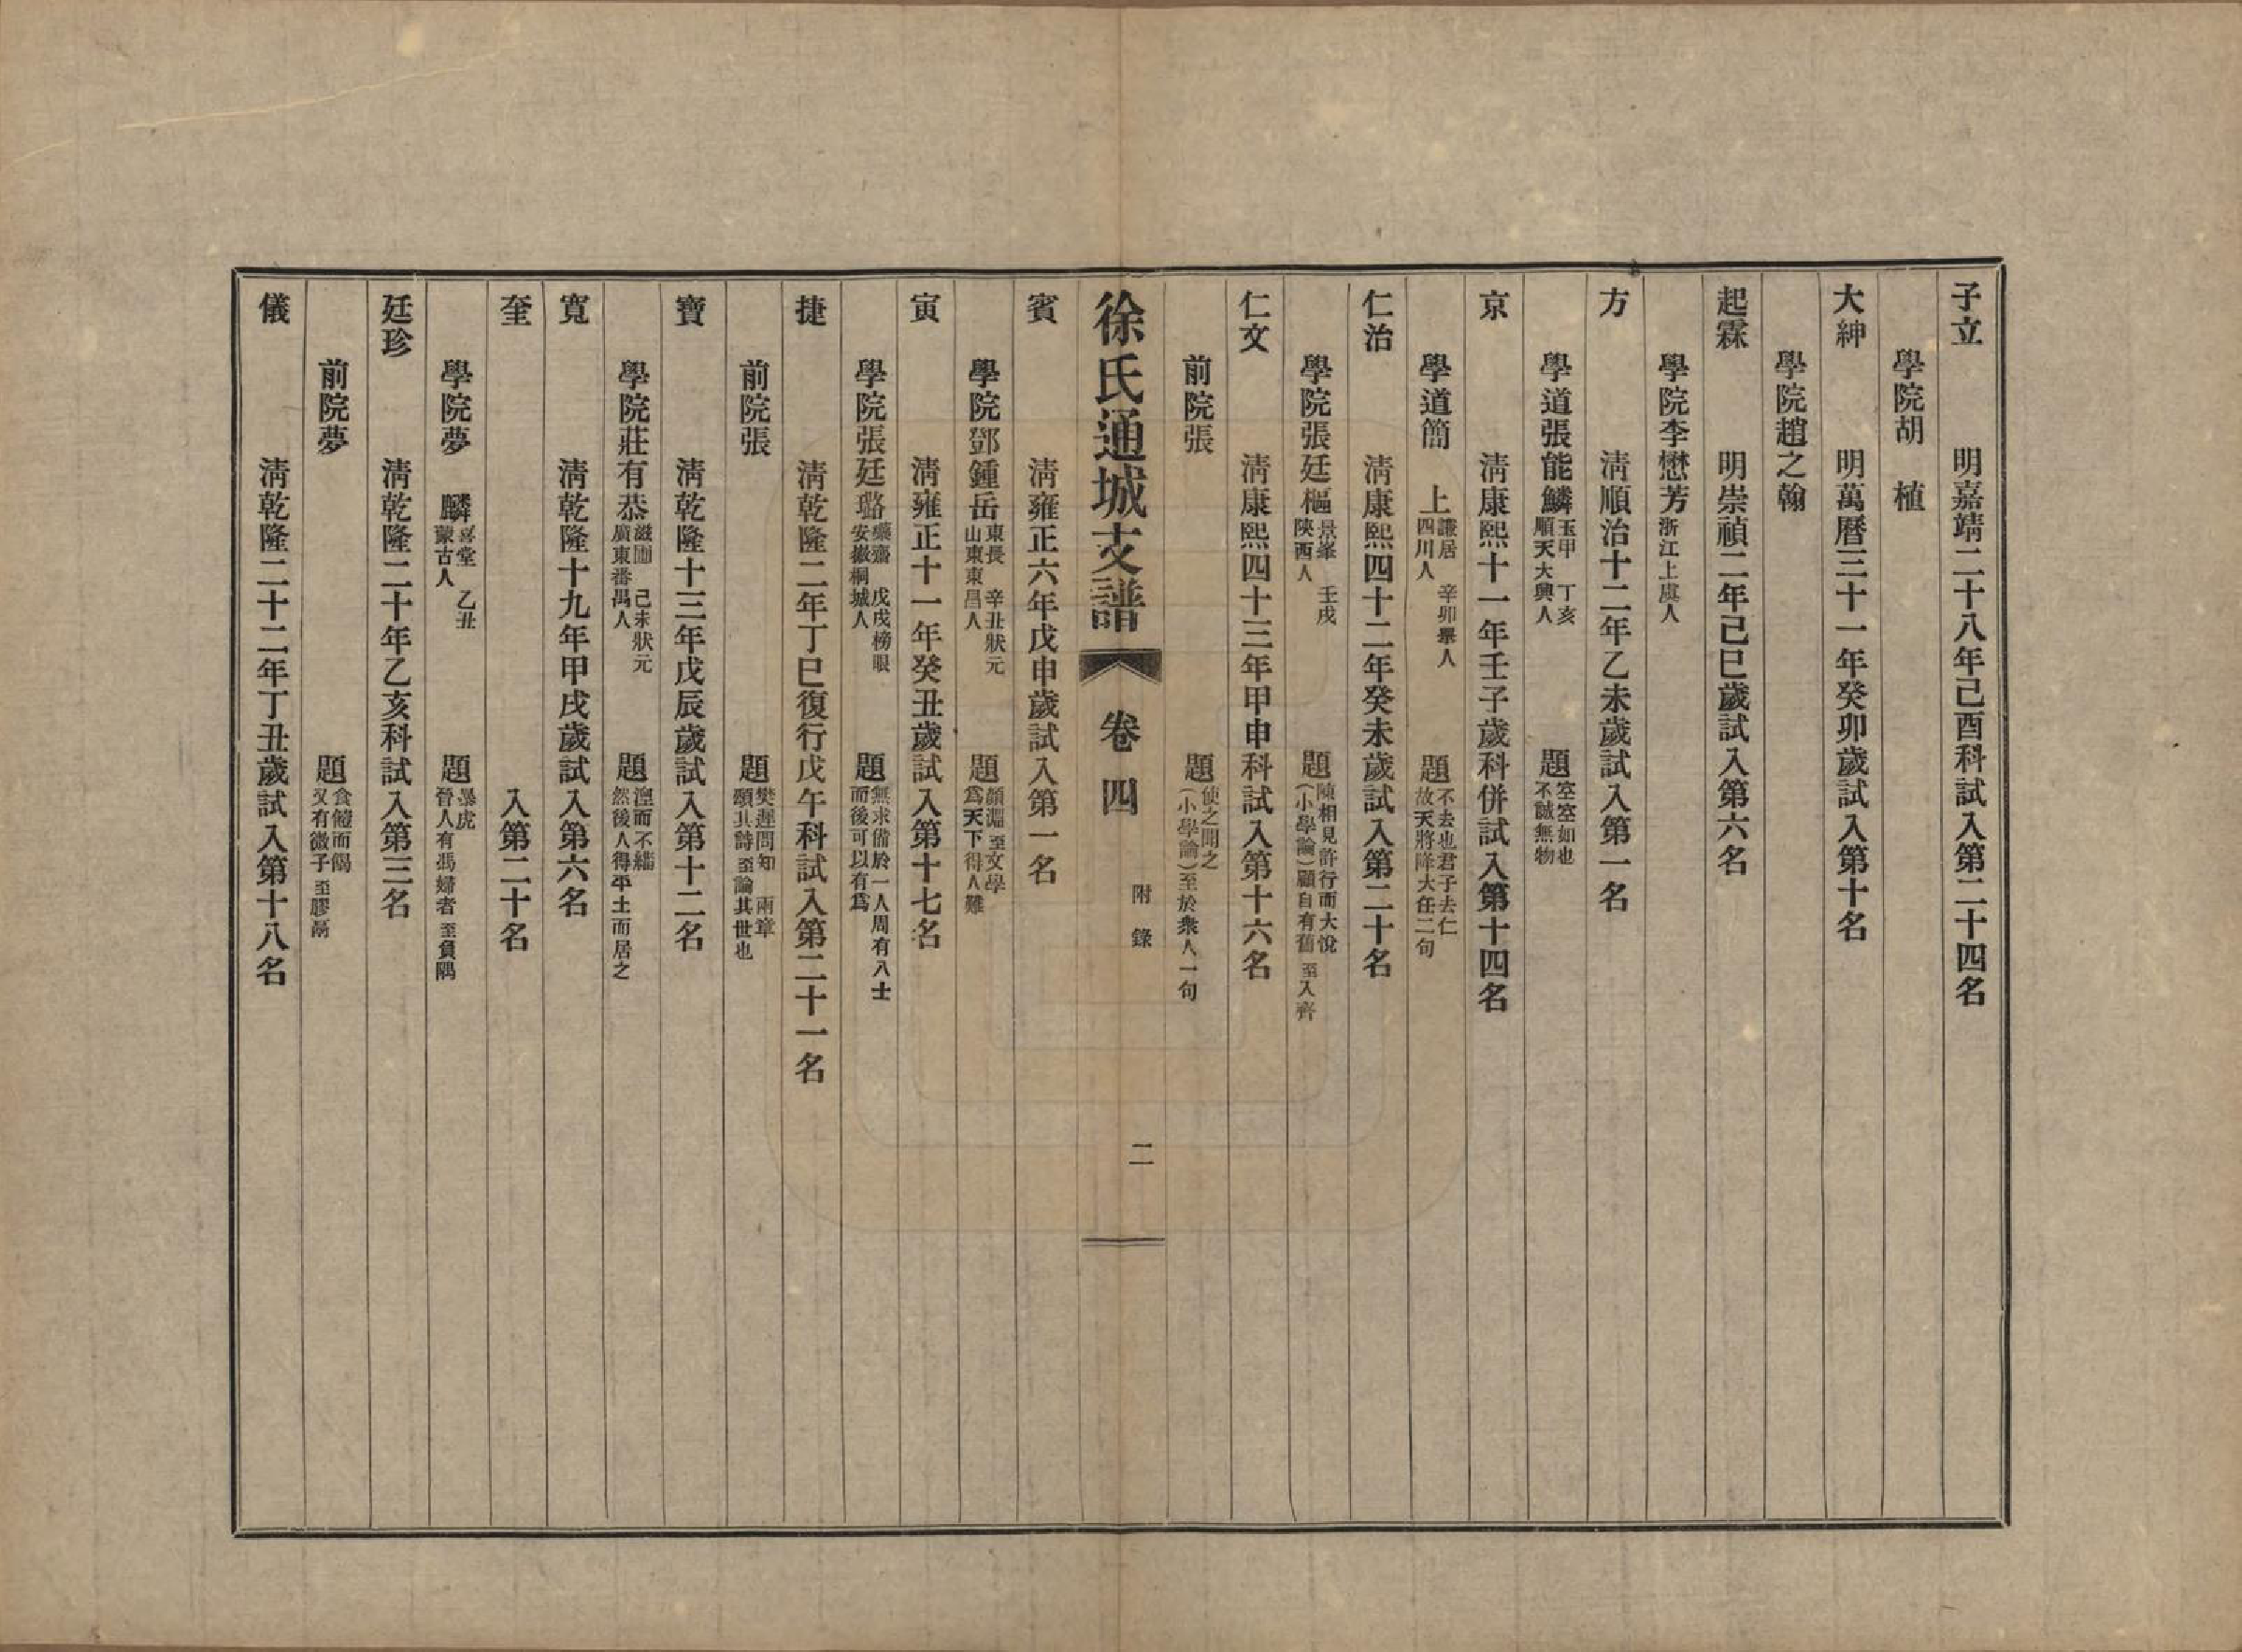 子立　明嘉靖二十八年己酉科試入第二十四名
學院胡　植
大紳　明萬曆三十一年癸卯歲試入第十名
學院趙之翰
起霖　明崇禎二年己巳歲試入第六名
學院李懋芳浙江上虞人
方　清順治十二年乙未歲試入第一名
學道張能鱗玉甲　丁亥順天大興人　題空空如也不誠無物
京　清康熙十一年壬子歲科併試入第十四名
學道簡　上謙居　辛卯舉人四川人　題不去也君子去仁故天將降大任二句
仁治　清康熙四十二年癸未歲試入第二十名
學院張廷樞景峯　壬戌陝西人　題陳相見許行而大悅(小學論)顧自有舊至入齊
仁文　清康熙四十三年甲申科試入第十六名
前院張　題使之聞之(小學論)至於衆人一句
徐氏通城支譜　卷四　附錄　二
賓　清雍正六年戊申歲試入第一名
學院鄧鍾岳東長　辛丑狀元山東東昌人　題顏淵至文學爲天下得人難
寅　清雍正十一年癸丑歲試入第十七名
學院張廷璐藥齋　戊戌榜眼安徽桐城人　題無求備於一人周有八士而後可以有爲
捷　清乾隆二年丁巳復行戊午科試入第二十一名
前院張　題樊遲問知　兩章頌其詩至論其世也
寶　清乾隆十三年戊辰歲試入第十二名
學院莊有恭滋圃　己未狀元廣東番禺人　題涅而不緇然後人得平土而居之
寬　清乾隆十九年甲戌歲試入第六名
奎　入第二十名
學院夢　麟喜堂　乙丑蒙古人　題暴虎晉人有馮婦者至負隅
廷珍　清乾隆二十年乙亥科試入第三名
前院夢　題食饐而餲又有微子至膠鬲
儀　清乾隆二十二年丁丑歲試入第十八名